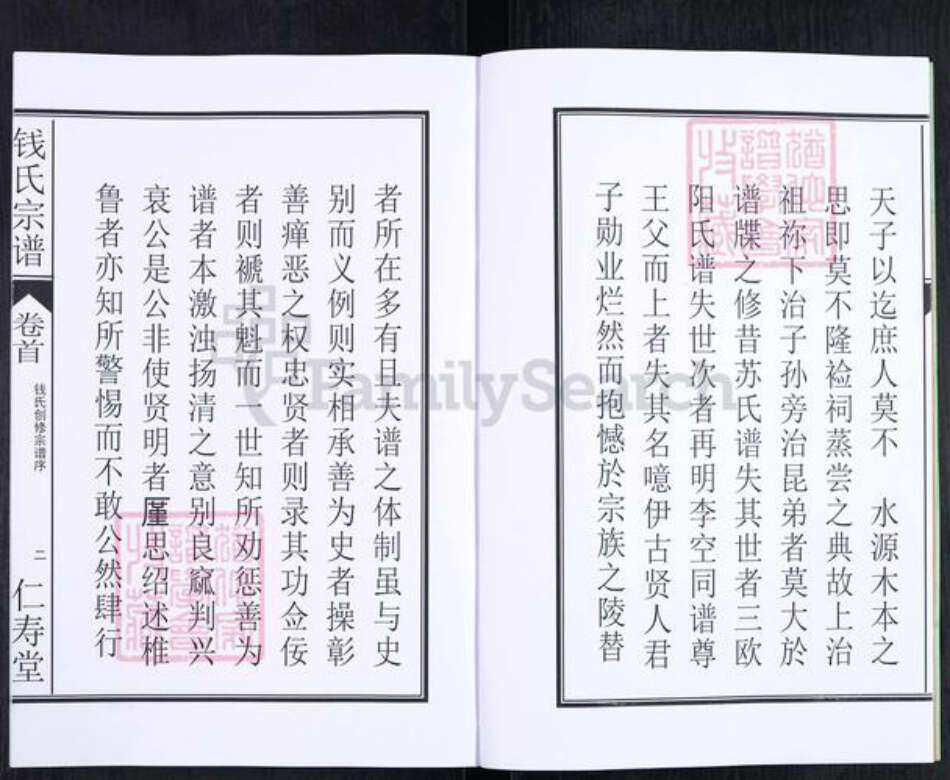 天子以迄庶人莫不　水源木本之
思即莫不隆裣祠蒸尝之典故上治
祖祢下治子孙旁治昆弟者莫大於
谱牒之修昔苏氏谱失其世者三欧
阳氏谱失世次者再明李空同谱尊
王父而上者失其名噫伊古贤人君
子勋业烂然而抱憾於宗族之陵替
者所在多有且夫谱之体制虽与史
别而义例则实相承善为史者操彰
善瘅恶之权忠贤者则录其功佥佞
者则褫其魁而一世知所劝惩善为
谱者本激浊扬清之意别良窳判兴
衰公是公非使贤明者思绍述椎
鲁者亦知所警惕而不敢公然肆行
钱氏宗谱
卷首
钱氏创修宗谱序
二
仁寿堂
FamilySearch